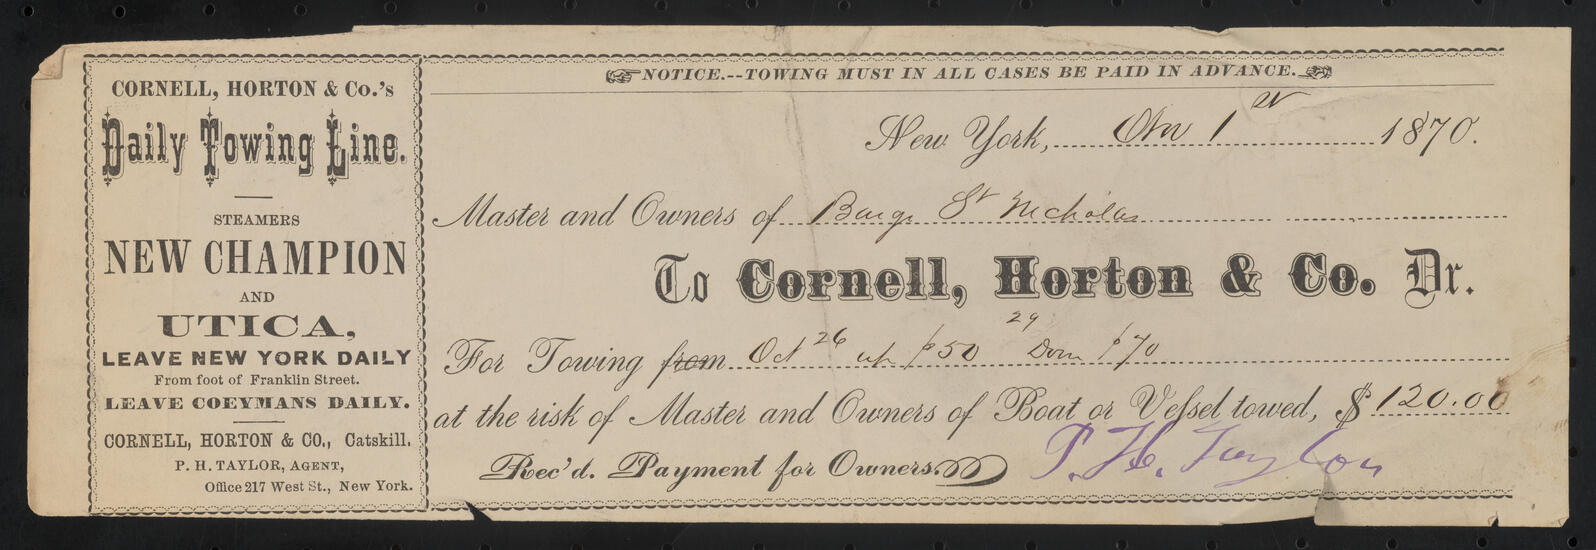 CORNELL, HORTON & Co.'s
Daily Towing Line.
STEAMERS
NEW CHAMPION
AND
UTICA,
LEAVE NEW YORK DAILY
From foot of Franklin Street.
LEAVE COEYMANS DAILY.
CORNELL, HORTON & CO., Catskill.
P. H. TAYLOR, AGENT,
Office 217 West St., New York.
NOTICE.--TOWING MUST IN ALL CASES BE PAID IN ADVANCE.
New York, 1st 1870.
Master and Owners of Barge St Nicholas
To Cornell, Horton & Co. Dr.
For Towing from Oct 26 up $50 29 Down $70
at the risk of Master and Owners of Boat or Vessel towed, $120.00
Rec'd. Payment for Owners. P. H. Taylor